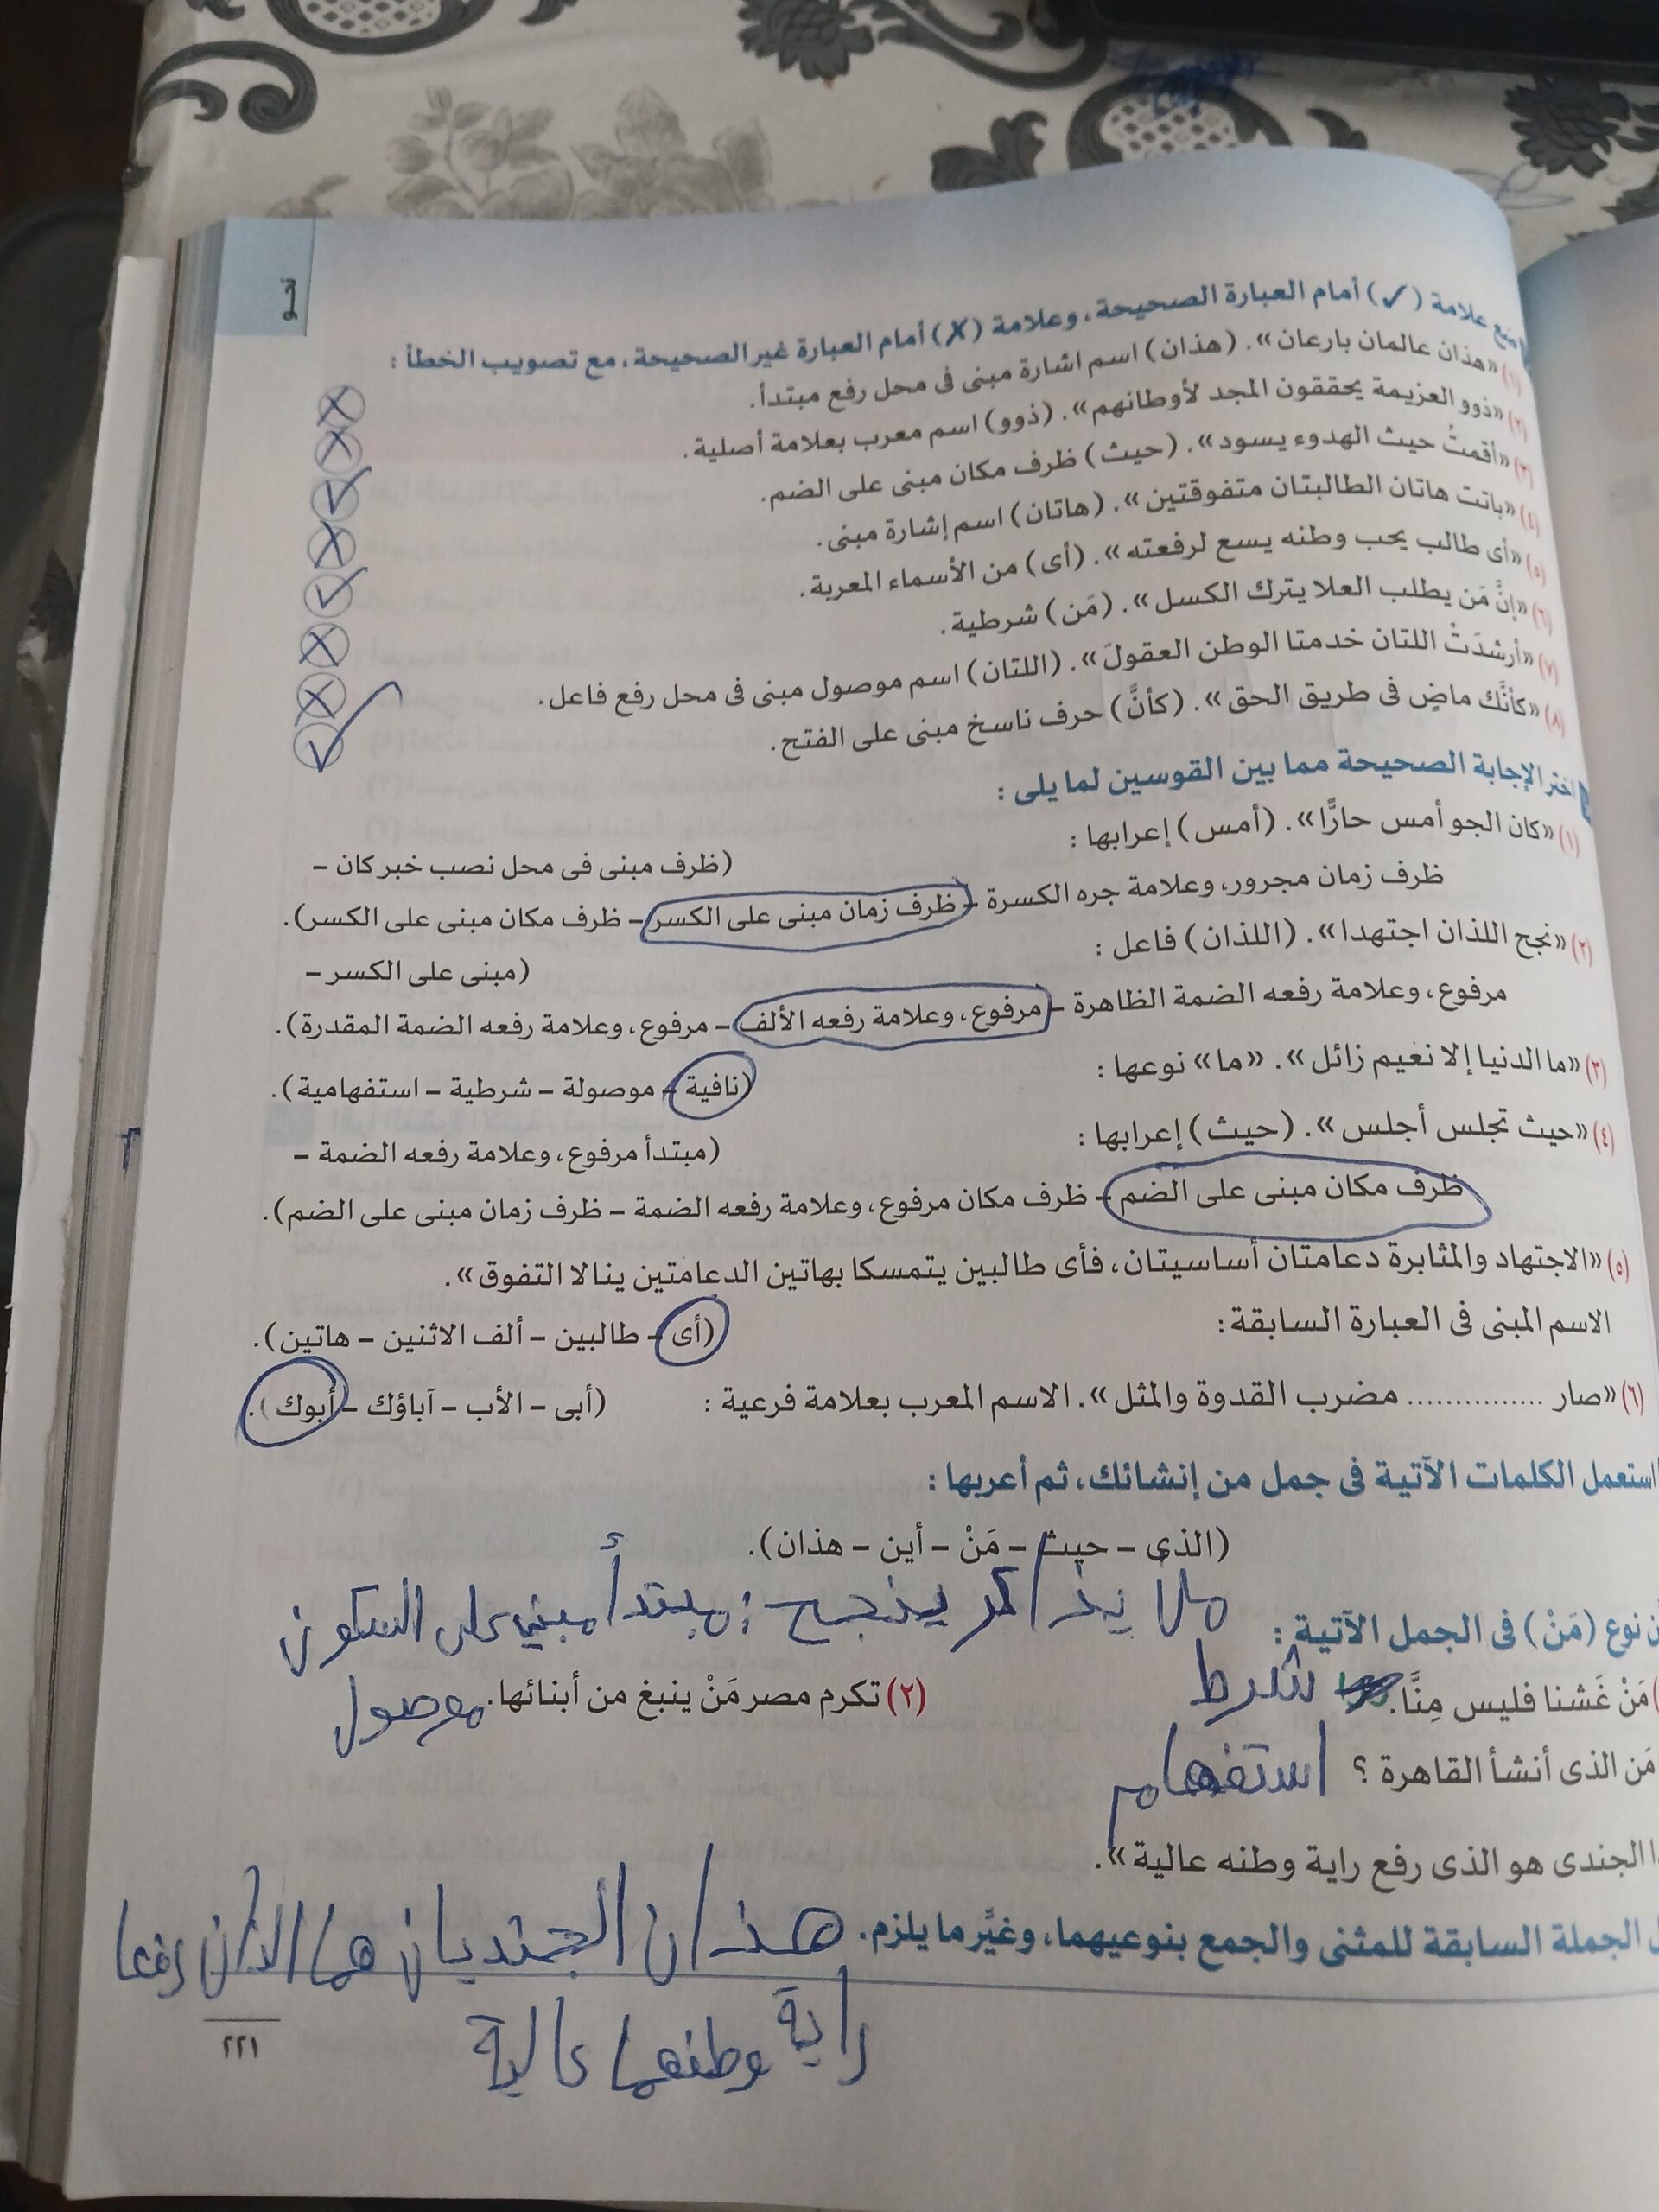 نحو
ضع علامة (✓) أمام العبارة الصحيحة، وعلامة (✗) أمام العبارة غير الصحيحة، مع تصويب الخطأ :
(١) «هذان عالمان بارعان». (هذان) اسم اشارة مبنى فى محل رفع مبتدأ.
(٢) «ذوو العزيمة يحققون المجد لأوطانهم». (ذوو) اسم معرب بعلامة أصلية.
(٣) «أقمتُ حيث الهدوء يسود». (حيث) ظرف مكان مبنى على الضم.
(٤) «باتت هاتان الطالبتان متفوقتين». (هاتان) اسم إشارة مبنى.
(٥) «أى طالب يحب وطنه يسع لرفعته». (أى) من الأسماء المعربة.
(٦) «إنَّ مَن يطلب العلا يترك الكسل». (مَن) شرطية.
(٧) «أرشدَتْ اللتان خدمتا الوطن العقولَ». (اللتان) اسم موصول مبنى فى محل رفع فاعل.
(٨) «كأنَّك ماضٍ فى طريق الحق». (كأنَّ) حرف ناسخ مبنى على الفتح.
اختر الإجابة الصحيحة مما بين القوسين لما يلى :
(١) «كان الجو أمس حارًّا». (أمس) إعرابها :
(ظرف مبنى فى محل نصب خبر كان –
ظرف زمان مجرور، وعلامة جره الكسرة – ظرف زمان مبنى على الكسر – ظرف مكان مبنى على الكسر).
(٢) «نجح اللذان اجتهدا». (اللذان) فاعل :
(مبنى على الكسر –
مرفوع، وعلامة رفعه الضمة الظاهرة – مرفوع، وعلامة رفعه الألف – مرفوع، وعلامة رفعه الضمة المقدرة).
(٣) «ما الدنيا إلا نعيم زائل». «ما» نوعها :
(نافية – موصولة – شرطية – استفهامية).
(٤) «حيث تجلس أجلس». (حيث) إعرابها :
(مبتدأ مرفوع، وعلامة رفعه الضمة –
ظرف مكان مبنى على الضم – ظرف مكان مرفوع، وعلامة رفعه الضمة – ظرف زمان مبنى على الضم).
(٥) «الاجتهاد والمثابرة دعامتان أساسيتان، فأى طالبين يتمسكا بهاتين الدعامتين ينالا التفوق».
الاسم المبنى فى العبارة السابقة :
(أى – طالبين – ألف الاثنين – هاتين).
(٦) «صار ............... مضرب القدوة والمثل». الاسم المعرب بعلامة فرعية : (أبى – الأب – آباؤك – أبوك).
استعمل الكلمات الآتية فى جمل من إنشائك، ثم أعربها :
(الذى – حيث – مَنْ – أين – هذان).
يذاكر ينجح : مبتدأ مبني على السكون
نوع (مَنْ) فى الجمل الآتية :
مَنْ غَشنا فليس مِنَّا. شرط (٢) تكرم مصر مَنْ ينبغ من أبنائها. موصول
مَن الذى أنشأ القاهرة ؟ استفهام
الجندى هو الذى رفع راية وطنه عالية».
الجملة السابقة للمثنى والجمع بنوعيهما، وغيِّر ما يلزم. هذان الجنديان هما اللذان رفعا
راية وطنهما عالية
٢٢١